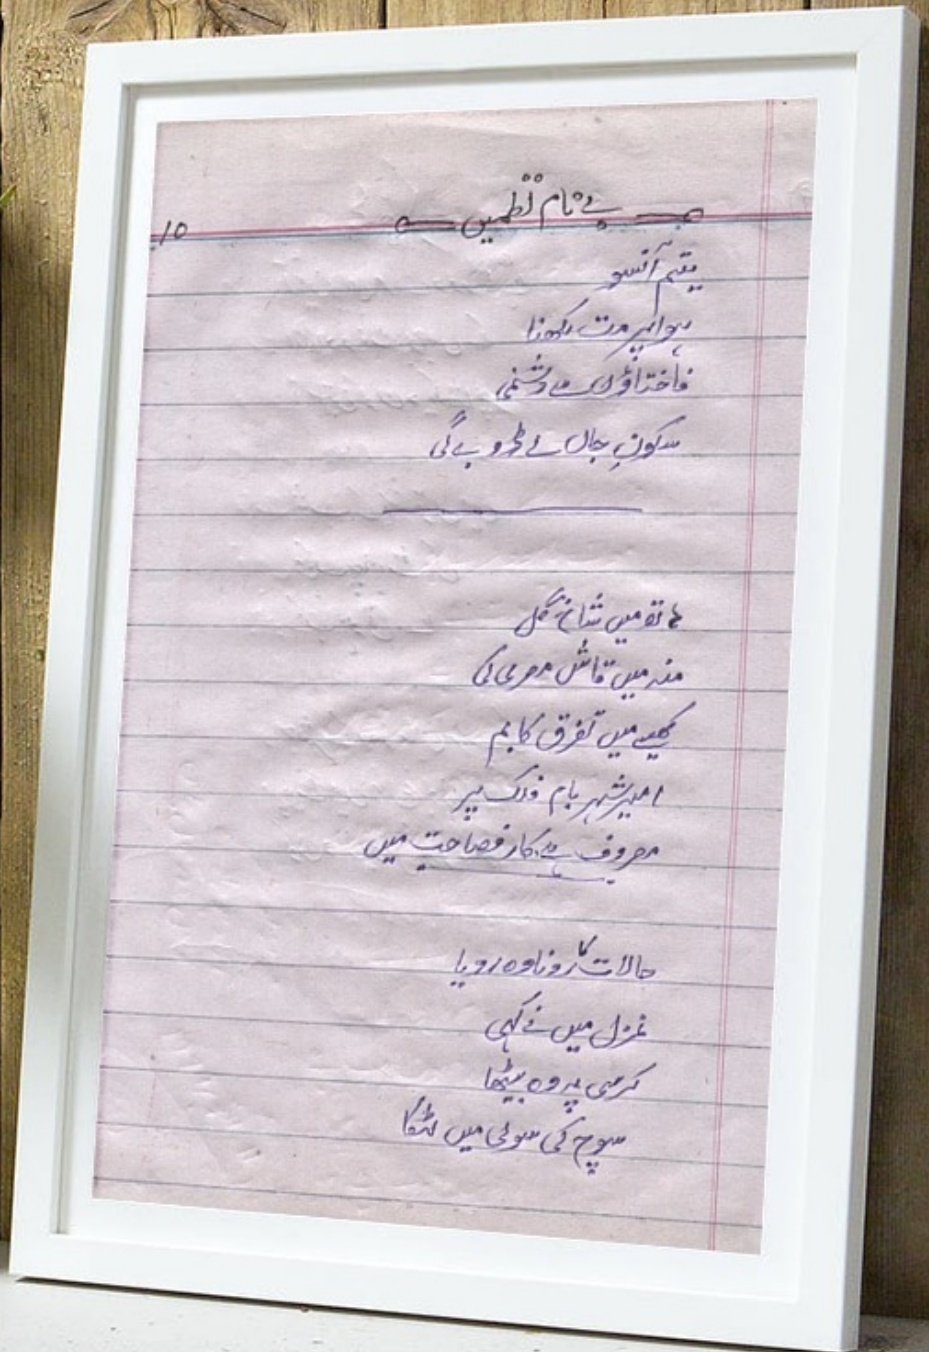 بے نام نظمیں
10
یتیم آنسو
ہوا پر مت لکھنا
فاختاؤں سے دشمنی
سکونِ جاں لے ڈوبے گی
ہاتھ میں شاخ گل
منہ میں قاش مصری کی
کھیسے میں تفرق کا بم
امیر شہر بام فلک پر
مصروف ہے کار فصاحت میں
حالات کا رونا وہ رویا
غزل میں نے کہی
کرسی پہ وہ بیٹھا
سوچ کی سولی میں لٹکا